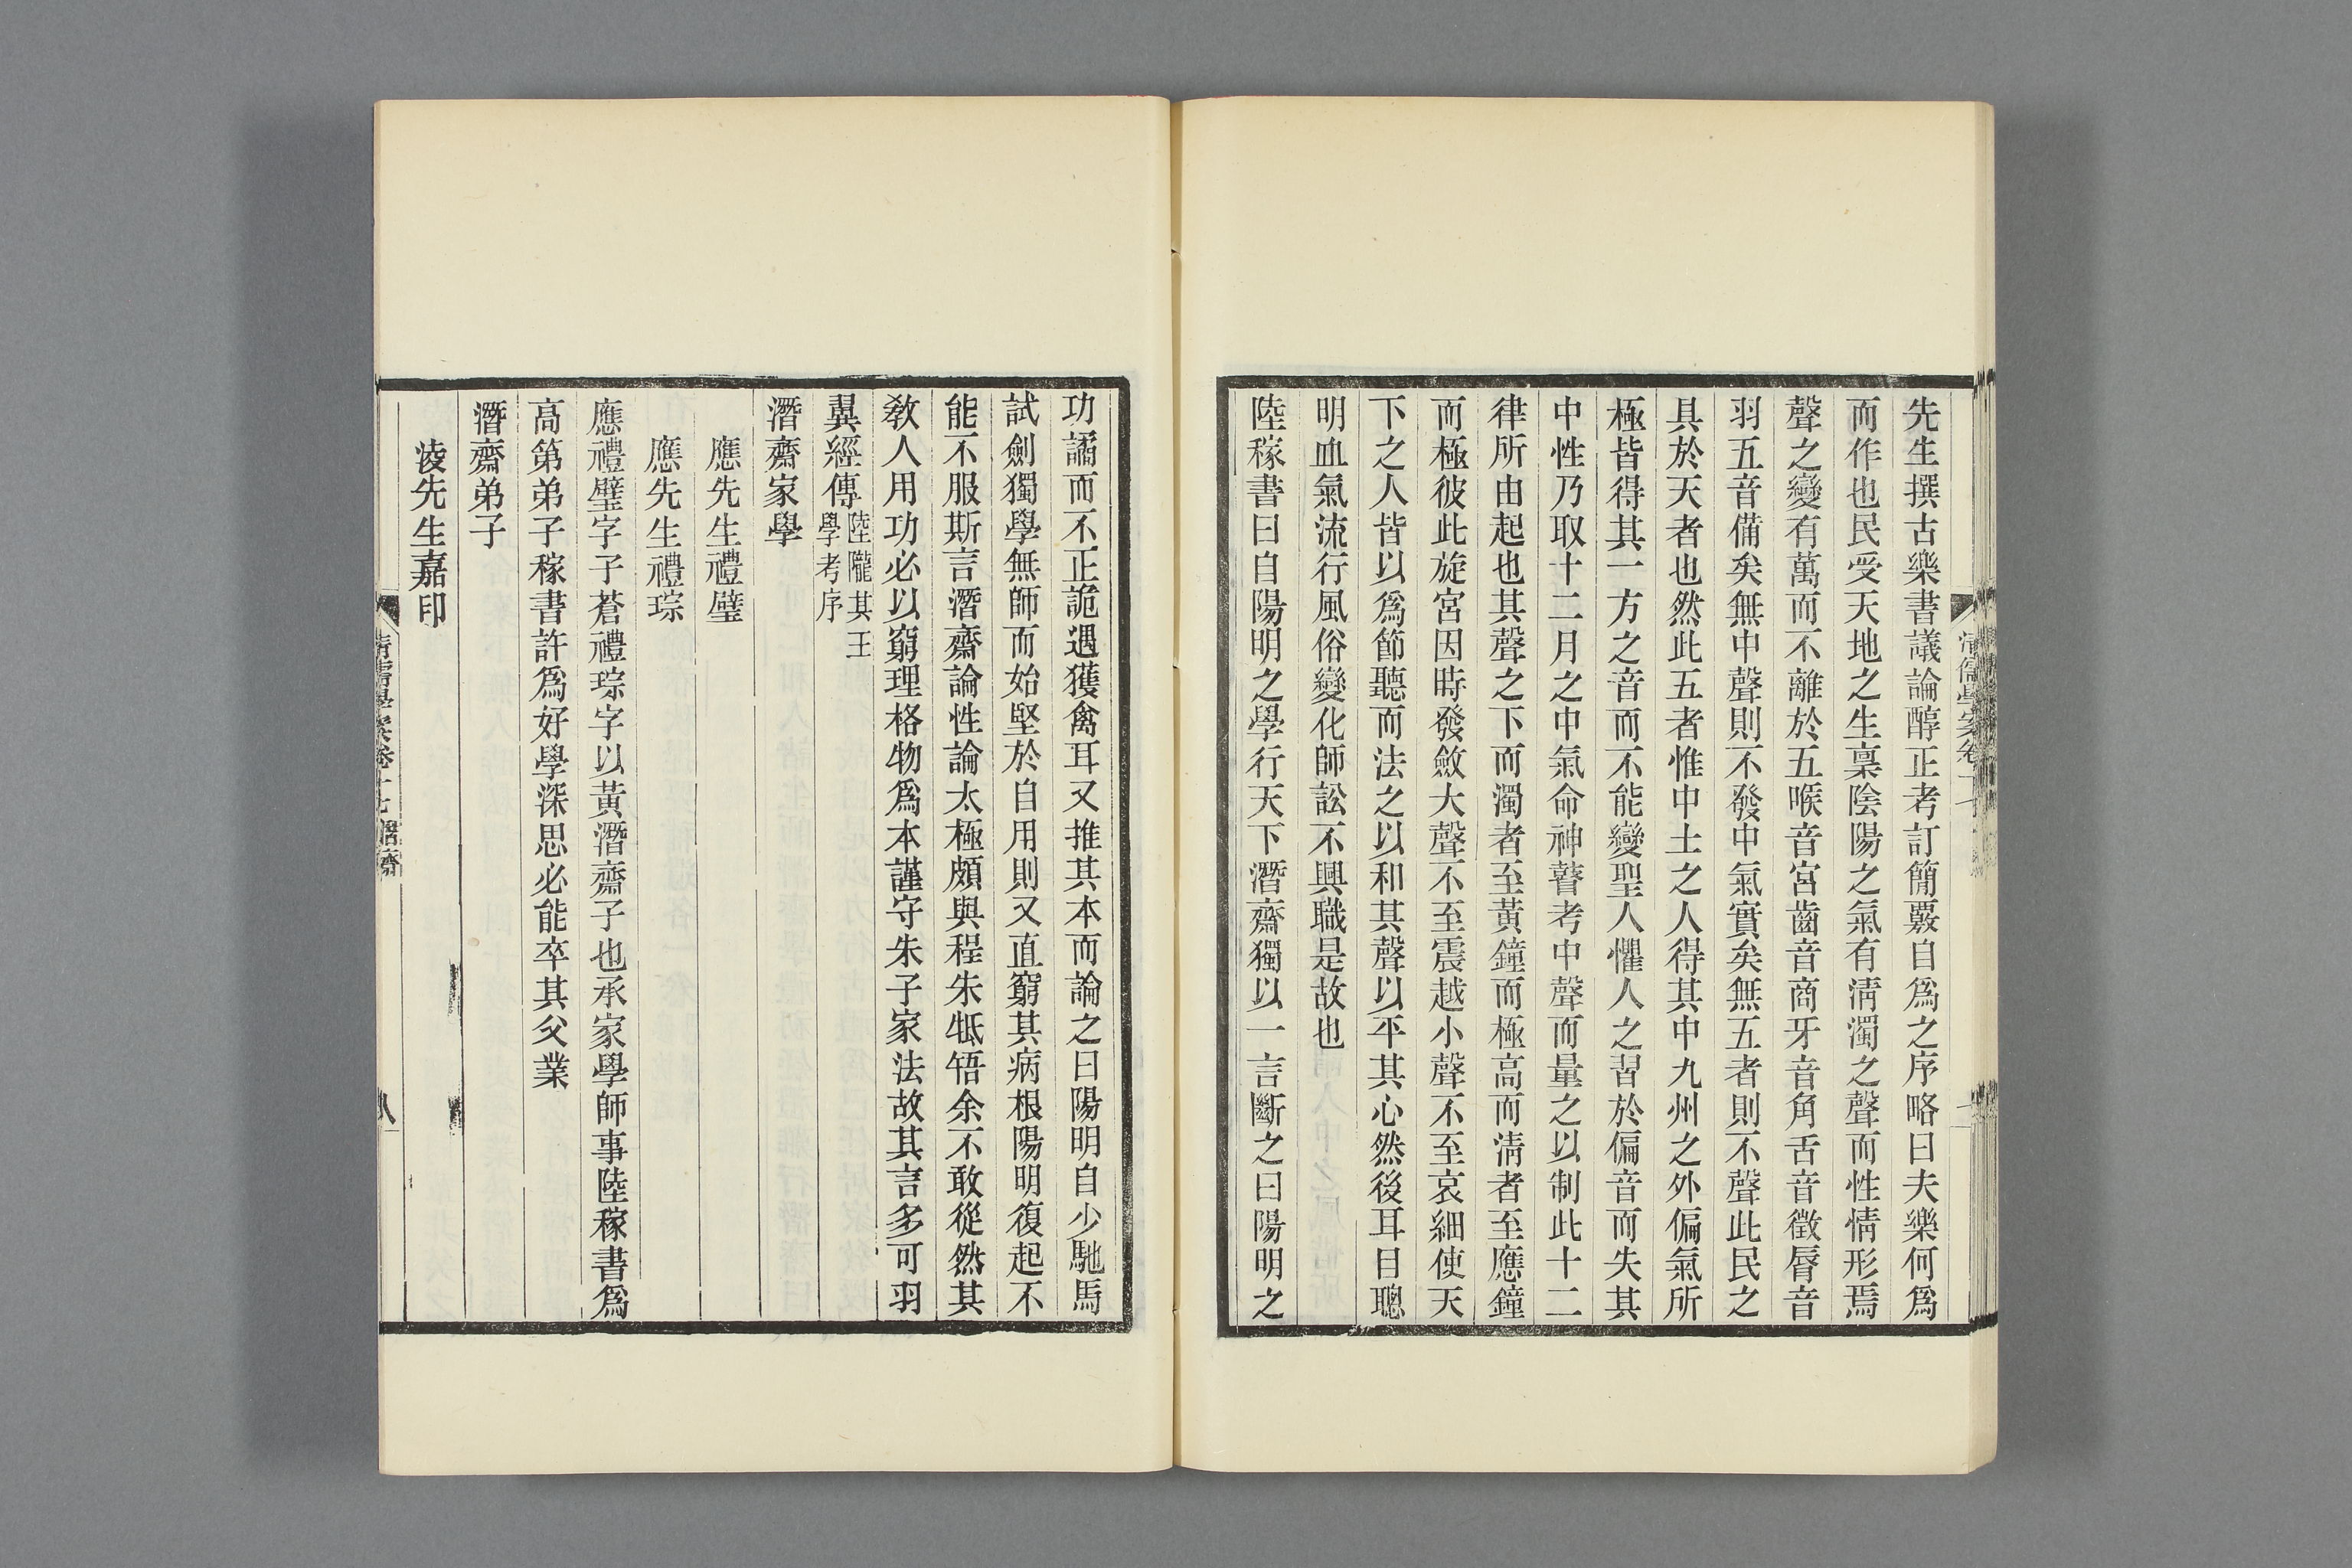 先生撰古樂書議論醇正考訂簡覈自爲之序略曰夫樂何爲
而作也民受天地之生稟陰陽之氣有淸濁之聲而性情形焉
聲之變有萬而不離於五喉音宮齒音商牙音角舌音徵脣音
羽五音備矣無中聲則不發中氣實矣無五者則不聲此民之
具於天者也然此五者惟中土之人得其中九州之外偏氣所
極皆得其一方之音而不能變聖人懼人之習於偏音而失其
中性乃取十二月之中氣命神瞽考中聲而量之以制此十二
律所由起也其聲之下而濁者至黃鐘而極高而淸者至應鐘
而極彼此旋宮因時發斂大聲不至震越小聲不至哀細使天
下之人皆以爲節聽而法之以和其聲以平其心然後耳目聰
明血氣流行風俗變化師訟不興職是故也
陸稼書曰自陽明之學行天下潛齋獨以一言斷之曰陽明之
功譎而不正詭遇獲禽耳又推其本而論之曰陽明自少馳馬
試劍獨學無師而始堅於自用則又直窮其病根陽明復起不
能不服斯言潛齋論性論太極頗與程朱牴牾余不敢從然其
敎人用功必以窮理格物爲本謹守朱子家法故其言多可羽
翼經傳陸隴其王學考序
潛齋家學
應先生禮璧
應先生禮琮
應禮璧字子蒼禮琮字以黃潛齋子也承家學師事陸稼書爲
高第弟子稼書許爲好學深思必能卒其父業
潛齋弟子
淩先生嘉印
淸儒學案卷十七 潛齋
八